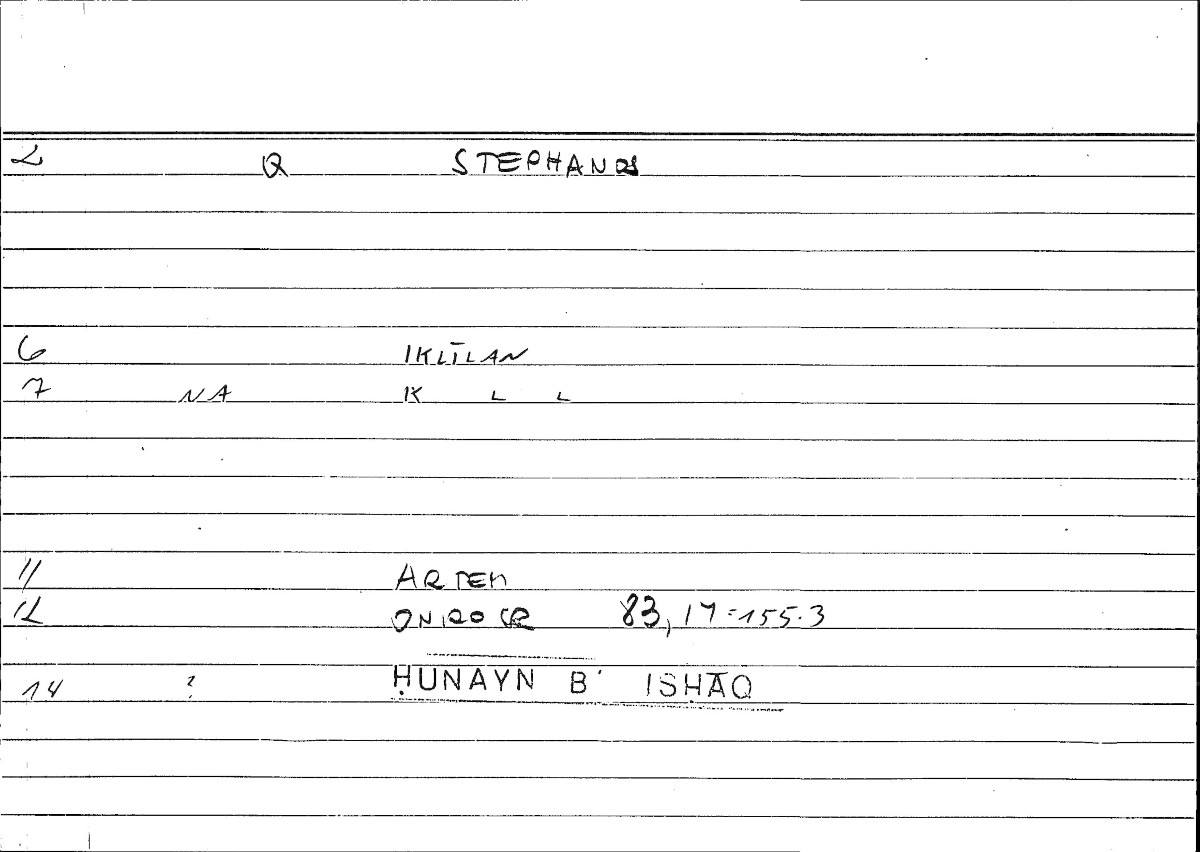 2 Q STEPHANOS
6 IKLĪLAN
7 NA K L L
11 ARTEM
12 ONIROCR 83,17=155.3
14 ? ḤUNAYN B' ISḤĀQ